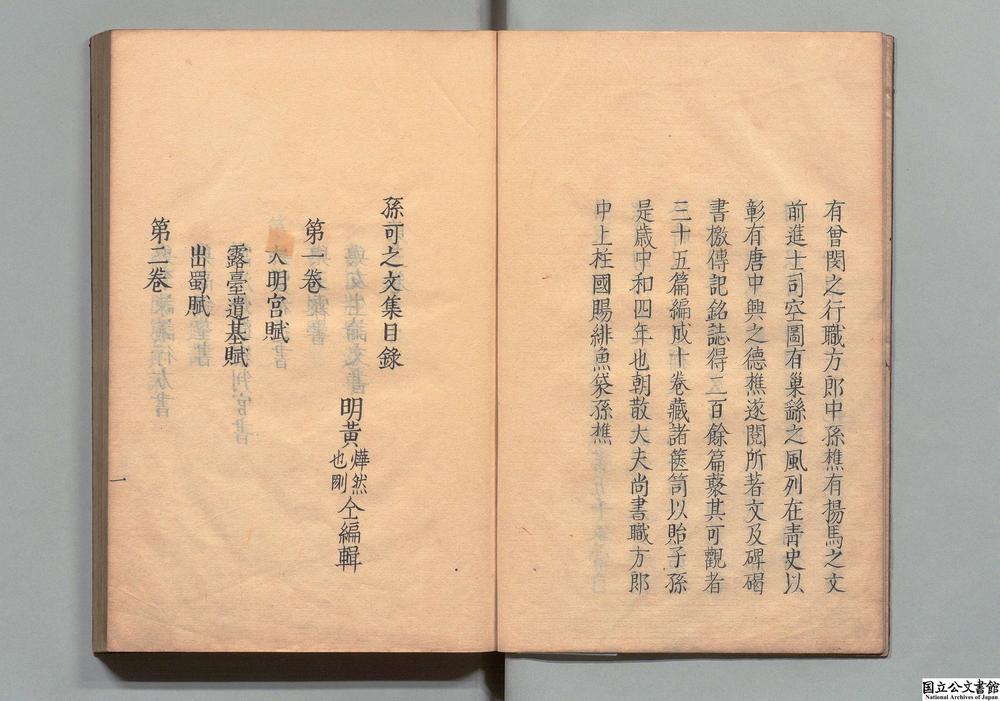 有曾閔之行職方郎中孫樵有揚馬之文
前進士司空圖有巢繇之風列在青史以
彰有唐中興之德樵遂閱所著文及碑碣
書檄傳記銘誌得二百餘篇藂其可觀者
三十五篇編成十卷藏諸篋笥以貽子孫
是歲中和四年也朝散大夫尚書職方郎
中上柱國賜緋魚袋孫樵
孫可之文集目錄
明黃燁然也剛仝編輯
第一卷
大明宮賦
露臺遺基賦
出蜀賦
第二卷
一
国立公文書館
National Archives of Japan